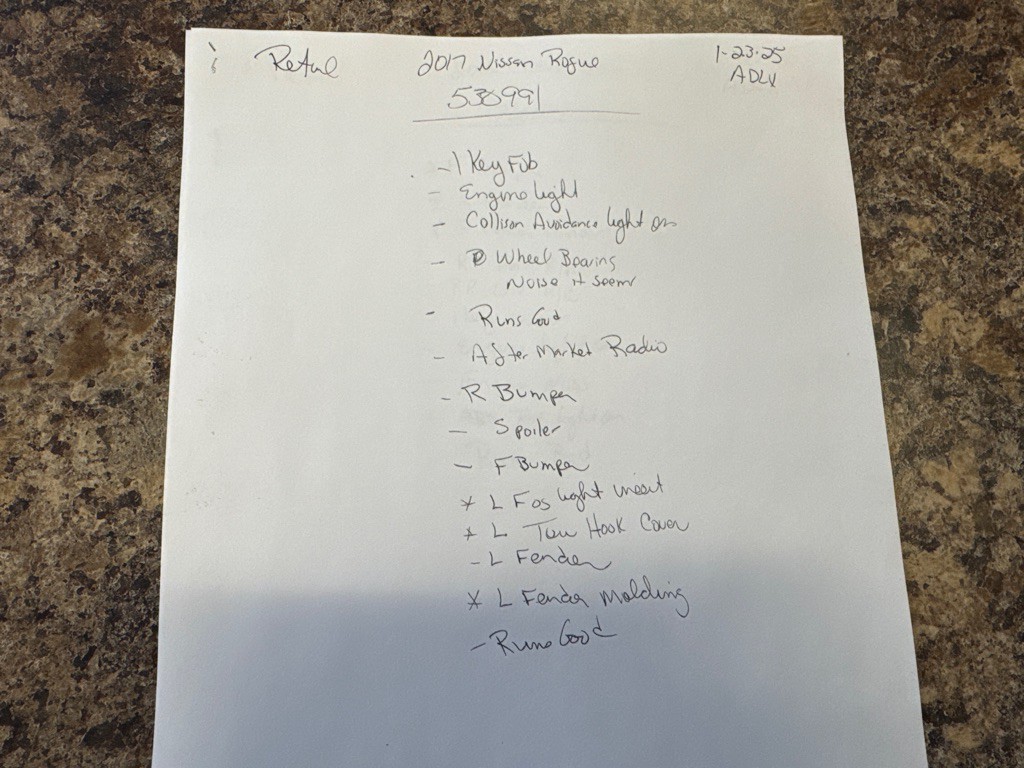 Retail 2017 Nissan Rogue 1-23-25
530991 ADLV
- 1 Key Fob
- Engine light
- Collison Avoidance light on
- Wheel Bearing
Noise it seems
- Runs Good
- After Market Radio
- R Bumper
- Spoiler
- F Bumper
* L Fog light insert
* L Tow Hook Cover
- L Fender
* L Fender Molding
- Runs Good